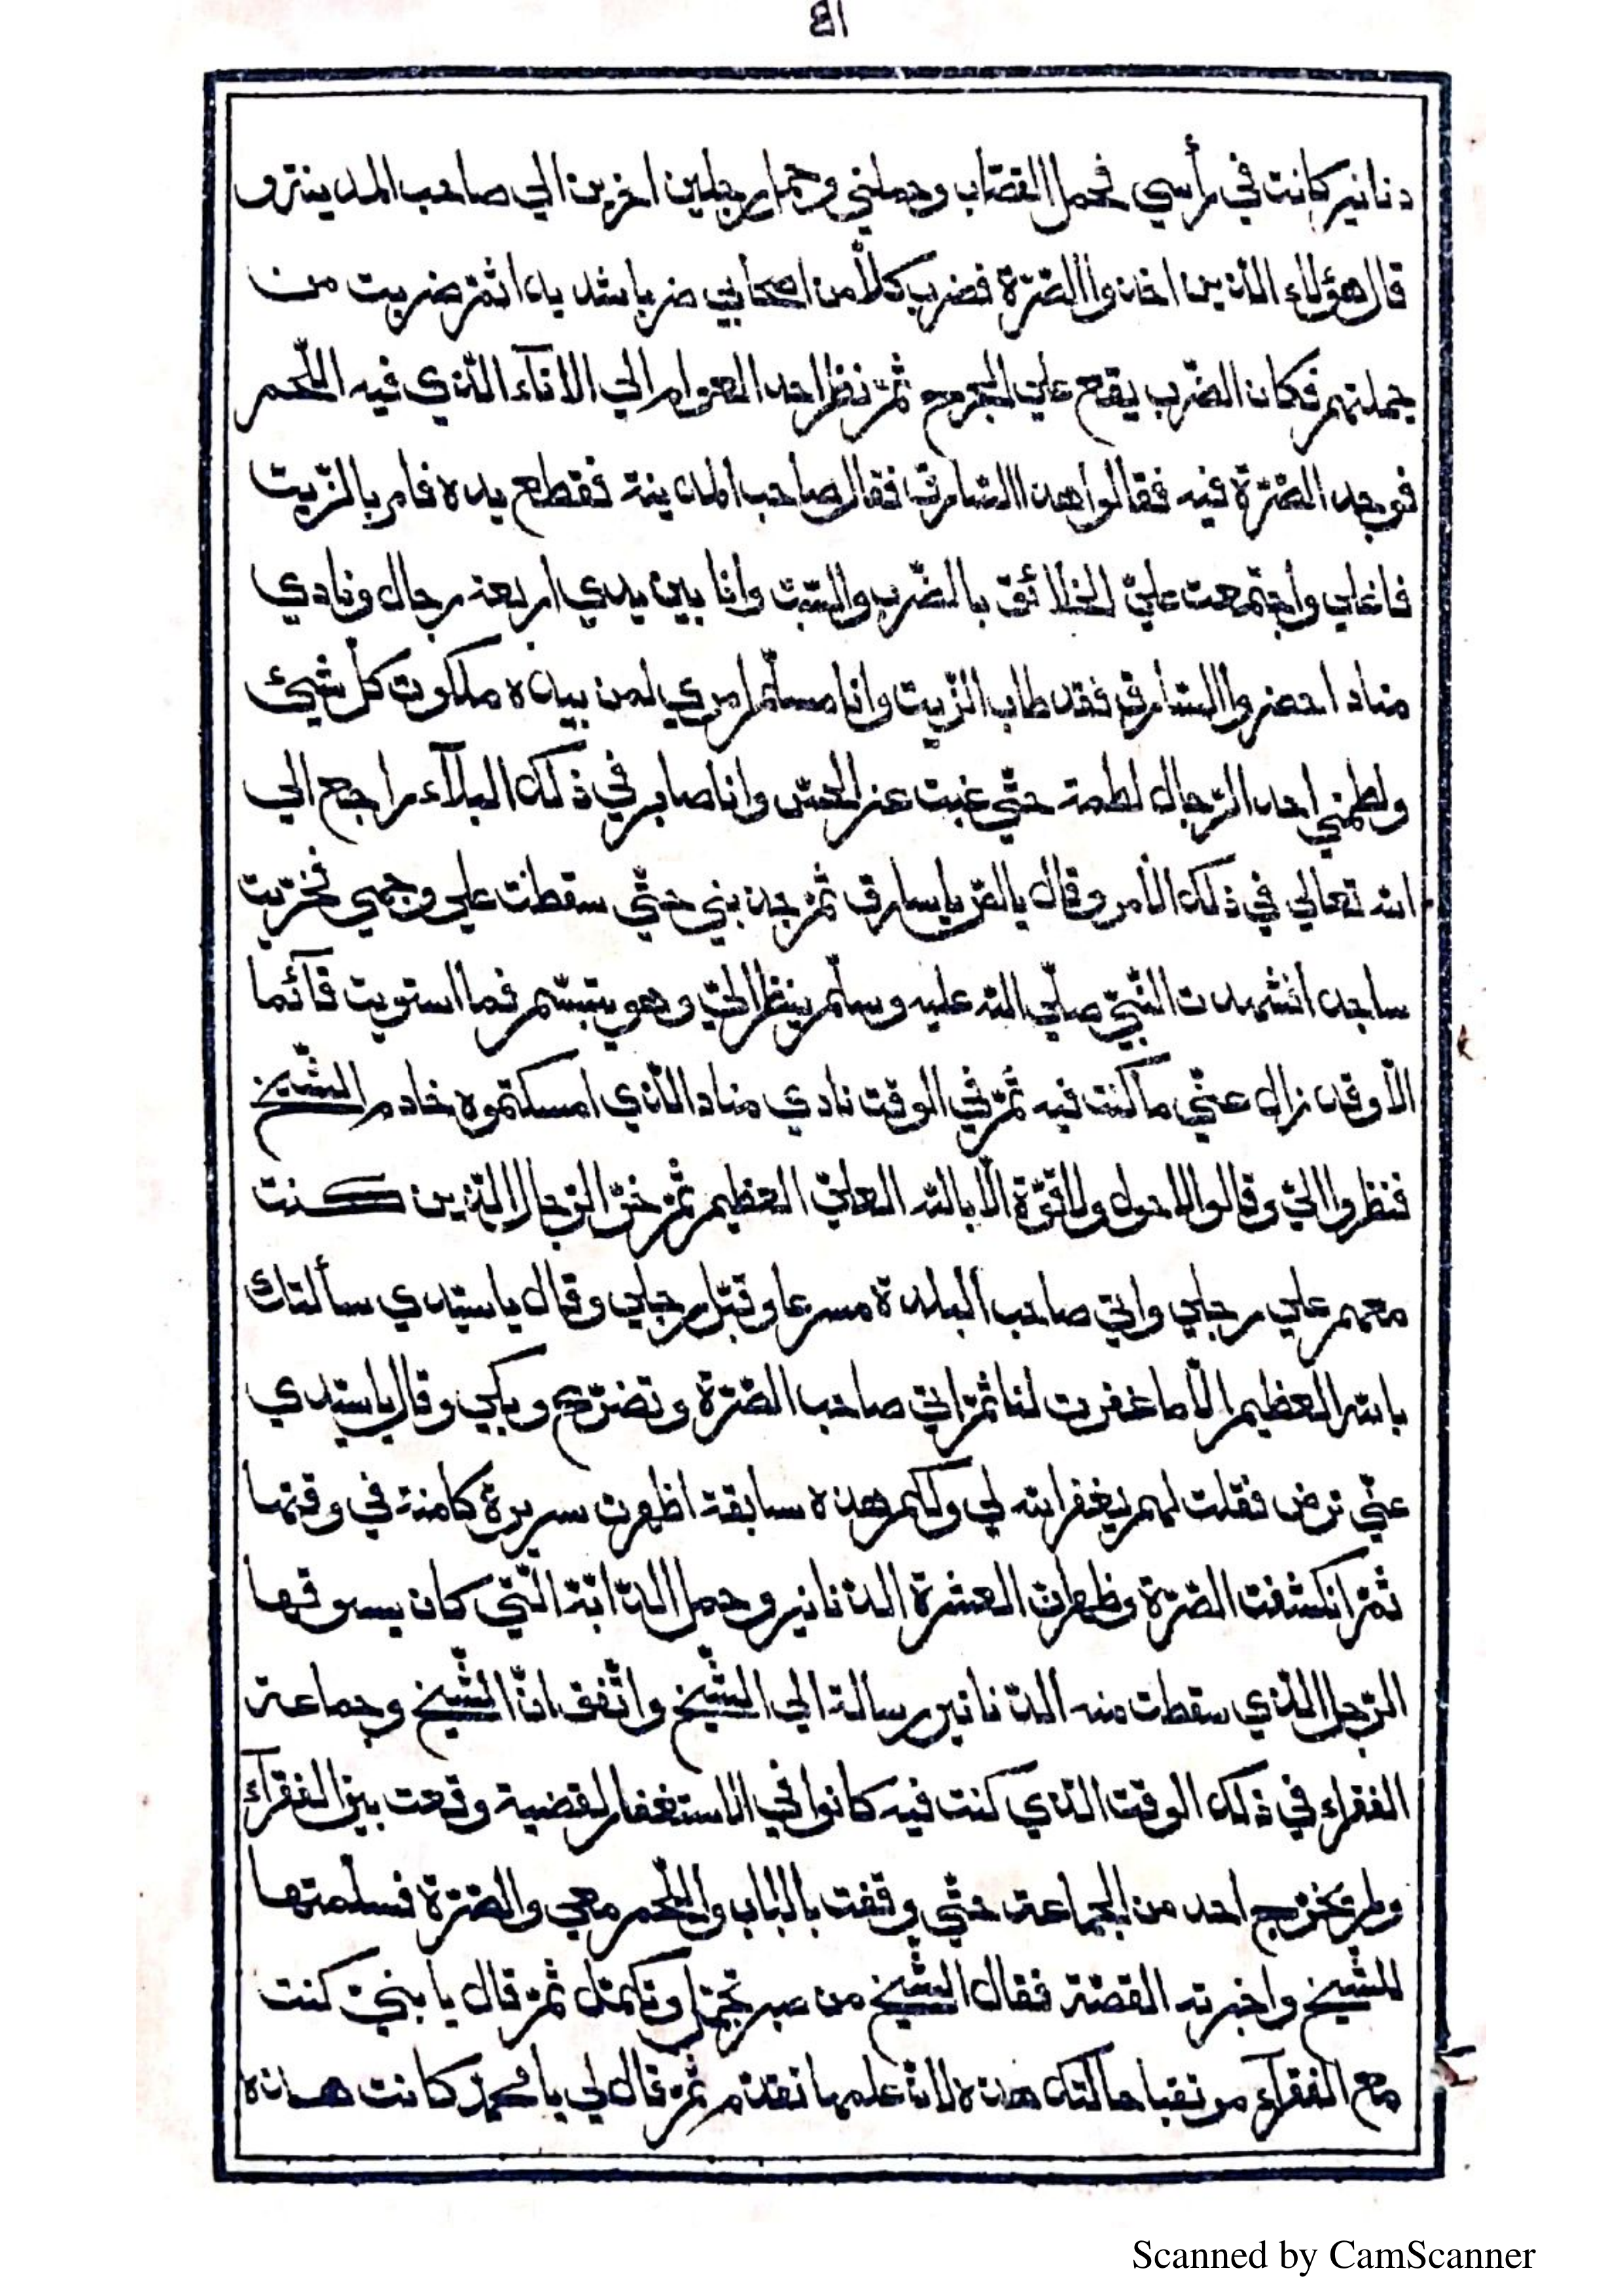 ١٤
دنانير كانت في رأسي فحمل القصّاب وحملني وحمل رجلين اخرين الي صاحب المدينة و
قال هؤلاء الّذين اخذوا الصّرّة فضرب كلاّ من اصحابي ضربا شديدا ثمّ ضربت من
جملتهم فكان الضّرب يقع علي الجرح ثمّ نظر احد العوام الي الاناء الّذي فيه اللّحم
فوجد الصّرّة فيه فقالوا هذا السّارق فقال صاحب المدينة فقطع يده فامر بالزّيت
فاغلي واجتمعت عليّ الخلائق بالضّرب والسّبّ وانا بين يدي اربعة رجال ونادي
مناد احضروا السّارق فقد طاب الزّيت وانا مسلّم امري لمن بيده ملكوت كلّ شيئ
ولطمني احد الرّجال لطمة حتّي غبت عن الحسّ وانا صابر في ذلك البلآء راجع الي
الله تعالي في ذلك الامر وقال يا لصّ يا سارق ثمّ جذبني حتّي سقطت علي وجهي فخرّيت
ساجدا فشهدت النّبيّ صلّي الله عليه وسلّم ينظر اليّ وهو يتبسّم فما استويت قآئما
الاّ وقد زال عنّي ما كنت فيه ثمّ في الوقت نادي مناد الّذي امسكتموه خادم الشّيخ
فنظروا اليّ وقالوا لا حول ولا قوّة الاّ بالله العليّ العظيم ثمّ خرّ الرّجال الّذين كنت
معهم علي رجلي واتي صاحب البلدة مسرعا وقبّل رجلي وقال يا سيّدي سألتك
بالله العظيم الاّ ما غفرت لنا ثمّ اتي صاحب الصّرّة وتضرّع وبكي وقال يا سيّدي
عنّي ترض فقلت لهم يغفر الله لي ولكم هذه سابقة اظهرت سريرة كامنة في وقتها
ثمّ انكشفت الصّرّة وظهرت العشرة الدّنانير وحمل الدّابّة الّتي كان يسوقها
الرّجل الّذي سقطت منه الدّنانير رسالة الي الشّيخ واتّفق انّ الشّيخ وجماعة
الفقراء في ذلك الوقت الّذي كنت فيه كانوا في الاستغفار لقضية وقعت بين الفقرآء
ولم يخرج احد من الجماعة حتّي وقفت بالباب واللّحم معي والصّرّة فسلّمتها
للشّيخ واخبرته القصّة فقال الشّيخ من صبر تجمّل وتكمّل ثمّ قال يا بنيّ كنت
مع الفقرآء مرتقبا حالتك هذه لانّه علمها تقدّم ثمّ قال لي يا محمّد كانت هذه
Scanned by CamScanner